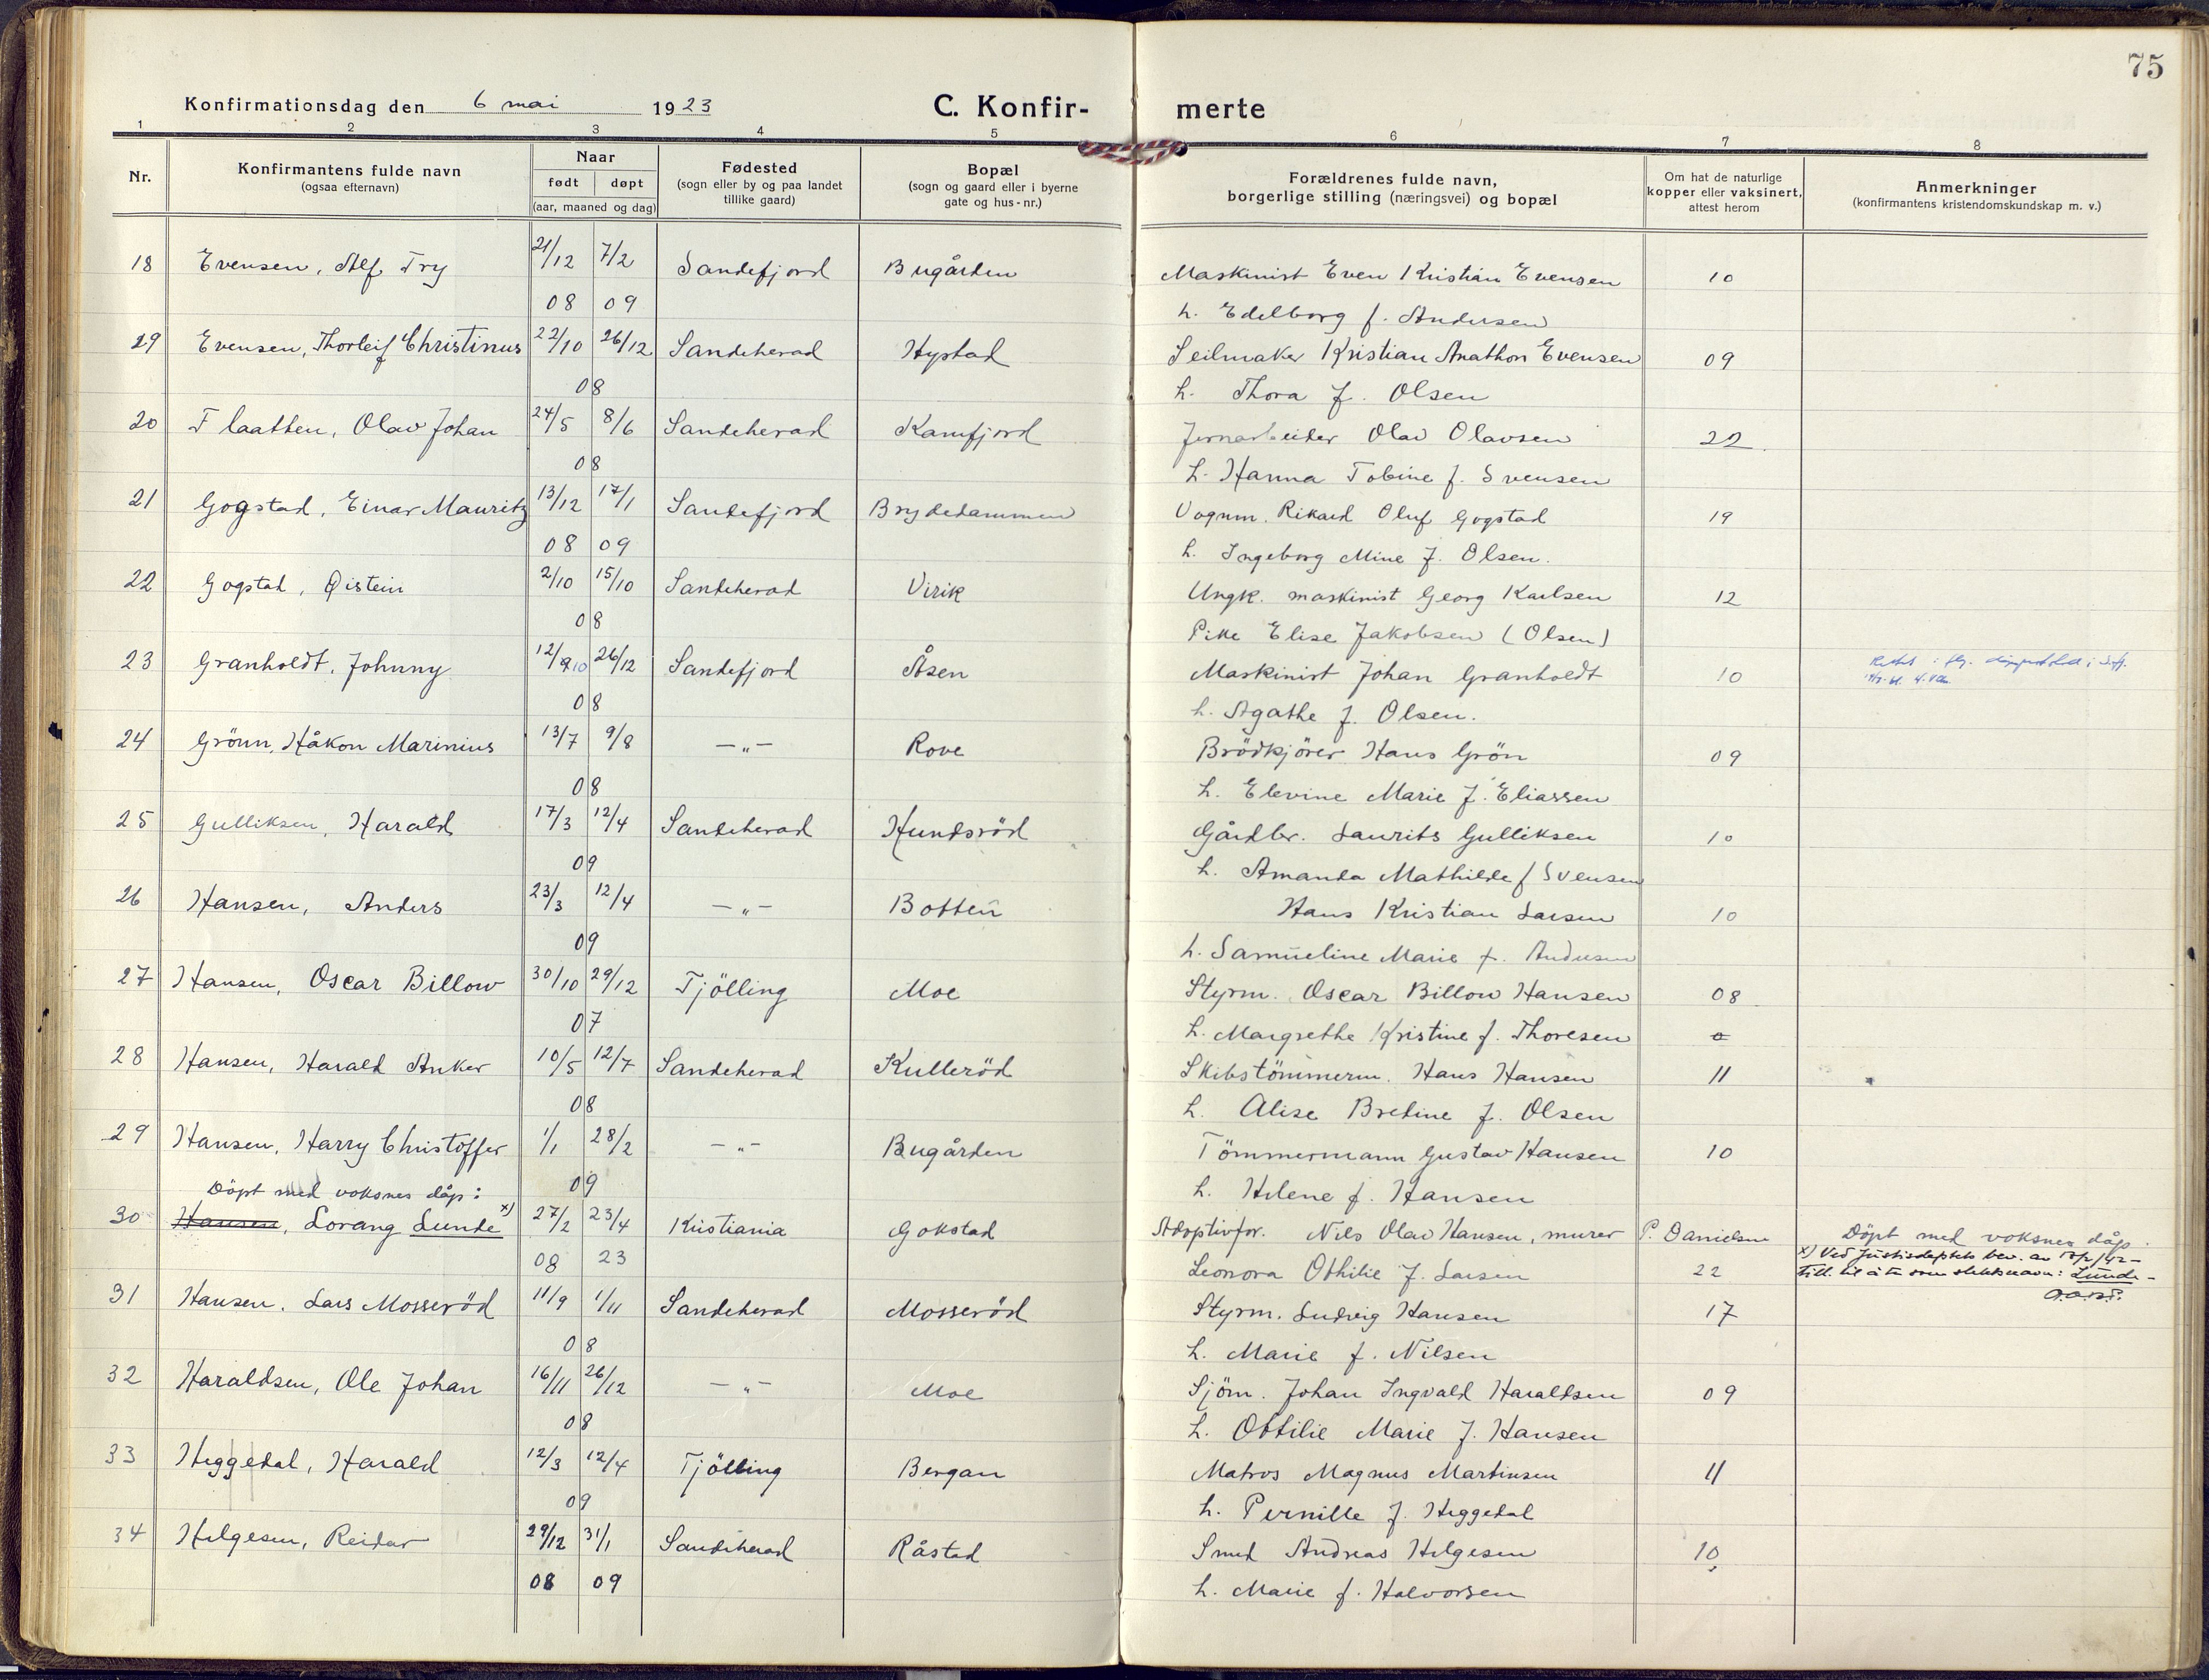 75
Konfirmationsdag den 6 mai 1923 C. Konfirmerte
1 2 3 4 5 6 7 8
Nr. Konfirmantens fulde navn (ogsaa efternavn) Naar født døpt (aar, maaned og dag) Fødested (sogn eller by og paa landet tillike gaard) Bopæl (sogn og gaard eller i byerne gate og hus-nr.) Forældrenes fulde navn, borgerlige stilling (næringsvei) og bopæl Om hat de naturlige kopper eller vaksinert, attest herom Anmerkninger (konfirmantens kristendomskundskap m. v.)
18 Evensen, Alf Try 21/12 7/2 Sandefjord Bugården Maskinist Even Kristian Evensen 10
08 09 h. Edelborg f. Andersen
29 Evensen, Thorleif Christinus 22/10 26/12 Sandeherad Hystad Seilmaker Kristian Anathon Evensen 09
08 h. Thora f. Olsen
20 Flaatten, Olav Johan 24/5 8/6 Sandeherad Kamfjord Jernarbeider Olav Olavsen 22
08 h. Hanna Tobine f. Svensen
21 Gogstad, Einar Mauritz 13/12 17/1 Sandefjord Brydedammen Vognm. Rikard Oluf Gogstad 19
08 09 h. Ingeborg Mine f. Olsen.
22 Gogstad, Øistein 2/10 15/10 Sandeherad Virik Ungk. maskinist Georg Karlsen 12
08 Pike Elise Jakobsen (Olsen)
23 Granholdt, Johnny 12/10 26/12 Sandefjord Åsen Maskinist Johan Granholdt 10
08 h. Agathe f. Olsen.
24 Grönn, Håkon Marinius 13/7 9/8 —"— Rove Brödkjörer Hans Grön 09
08 h. Elevine Marie f. Eliassen
25 Gulliksen, Harald 17/3 12/4 Sandeherad Hundsröd Gårdbr. Laurits Gulliksen 10
09 h. Amanda Mathilde f Svensen
26 Hansen, Anders 23/3 12/4 —"— Botten Hans Kristian Larsen 10
09 h. Samueline Marie f. Andersen
27 Hansen, Oscar Billow 30/10 29/12 Tjölling Moe Styrm. Oscar Billow Hansen 08
07 h. Margrethe Kristine f. Thoresen
28 Hansen, Harald Anker 10/5 12/7 Sandeherad Kulleröd Skibstömmerm. Hans Hansen 11
08 h. Alise Bretine f. Olsen
29 Hansen, Harry Christoffer 1/1 28/2 —"— Bugården Tömmermann Gustav Hansen 10
Döpt med voksnes dåp: 09 h. Helene f. Hansen
30 Hansen, Lorang Lunde x) 27/2 23/4 Kristiania Gokstad Adoptivfor. Nils Olav Hansen, murer P. Danielsen Döpt med voksnes dåp.
08 23 Leonora Othilie f. Larsen 22 x) Ved Justisdeptets bev. av
till. til å ta som slektsnavn: Lunde -
31 Hansen. Lars Mosseröd 11/9 1/11 Sandeherad Mosseröd Styrm. Ludvig Hansen 17
08 h. Marie f. Nilsen
32 Haraldsen, Ole Johan 16/11 26/12 —"— Moe Sjöm. Johan Ingvald Haraldsen 09
08 h. Othilie Marie f. Hansen
33 Heggedal, Harald 12/3 12/4 Tjölling Bergan Matros Magnus Martinsen 11
09 h. Pernille f. Heggedal
34 Helgesen, Reidar 29/12 31/1 Sandeherad Råstad Smed Andreas Helgesen 10
08 09 h. Marie f. Halvorsen